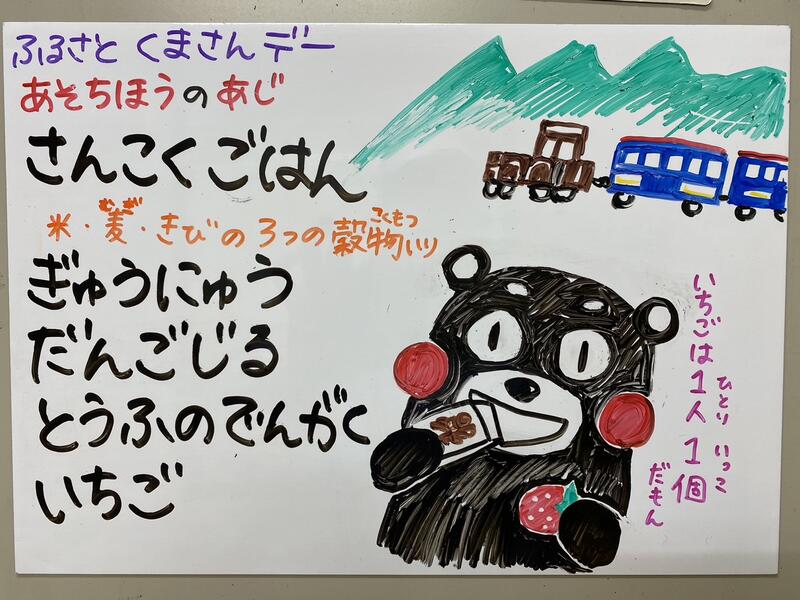 ふるさと くまさんデー
あそちほうのあじ
さんこくごはん
米・麦・きびの3つの穀物いり
むぎ
こくもつ
ぎゅうにゅう
だんごじる
とうふのでんがく
いちご
いちごは1人1個だもん
ひとり いっこ